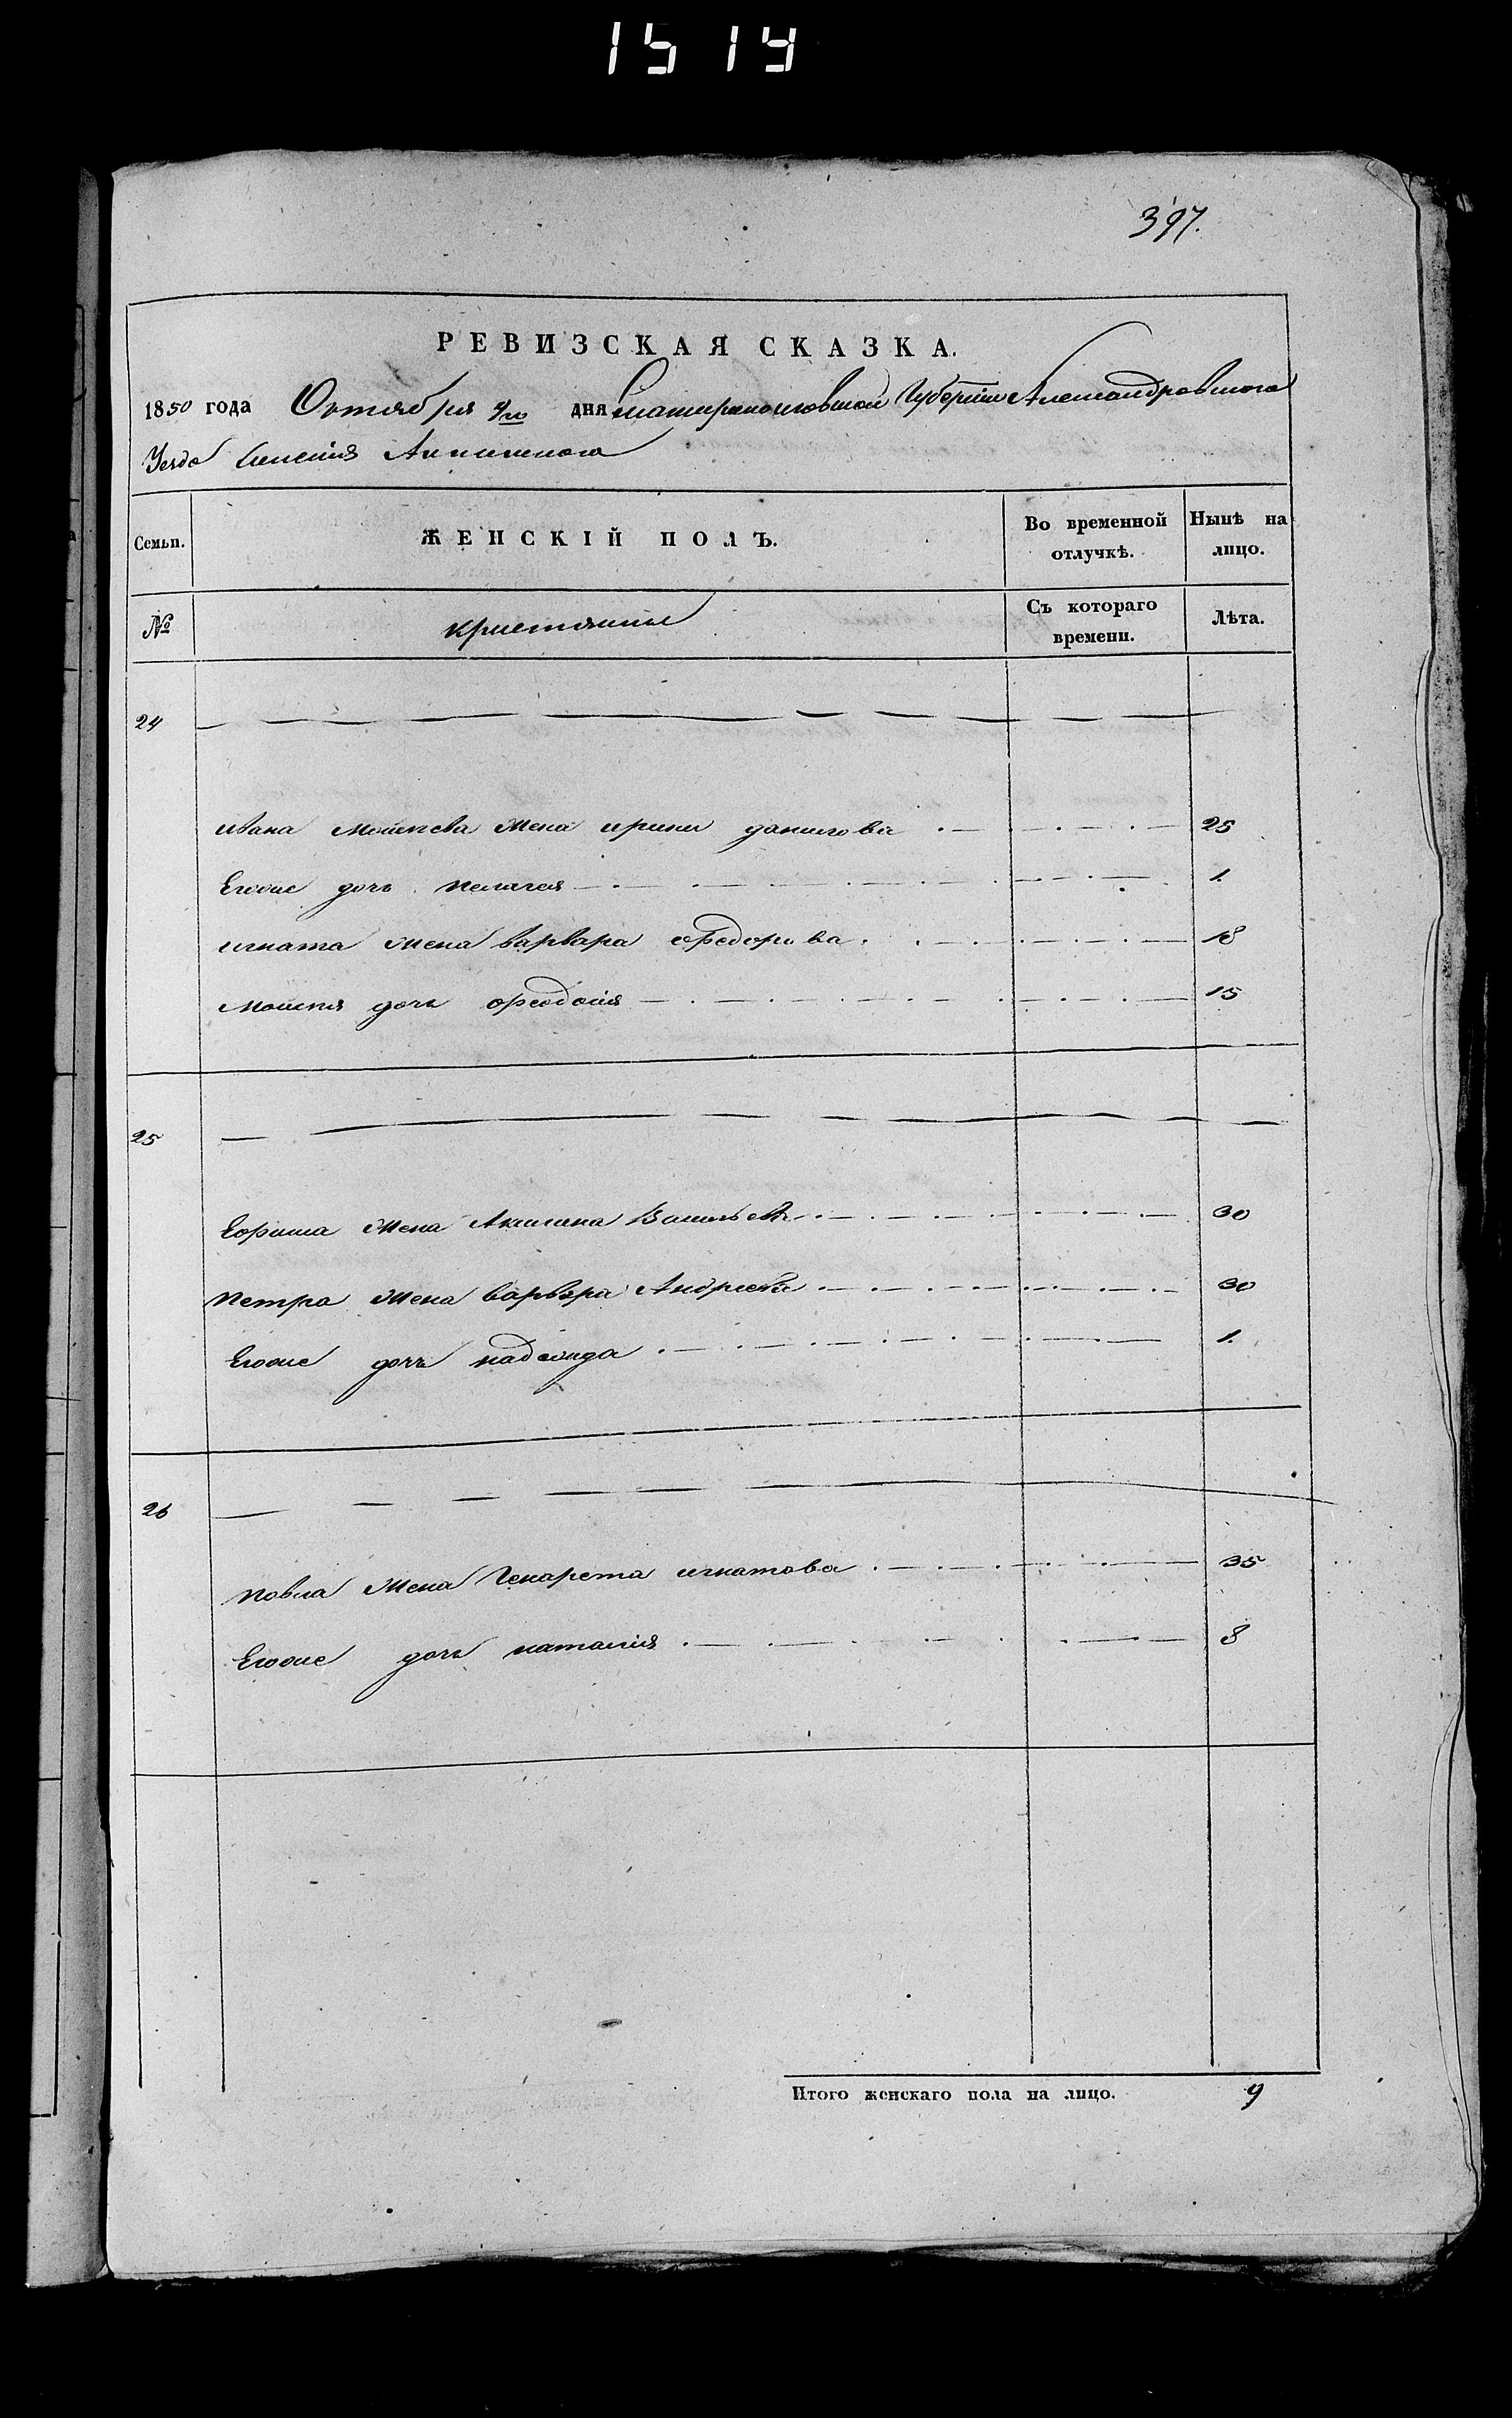 1514
397.
РЕВИЗСКАЯ СКАЗКА.
1850 года Октября дня Екатеринославской Губернии Александровского
Уезда Имения
Семьи. ЖЕНСКІЙ ПОЛЪ. Во временной отлучкѣ. Нынѣ на лицо.
№ Съ котораго времени. Лѣта.
24
ивана Мойсиева Жена ирина данилова 25
Егоже дочь пелагея 1.
игната Жена варвара офедорова 18
Мойсия дочь офеодосия 15
25
Ефрима Жена Акилина Васильева 30
петра Жена варвара Андреева 30
Егоже дочь надежда 1.
26
павла Жена игнатова 35
Егоже дочь наталия 8
Итого женскаго пола на лицо. 9